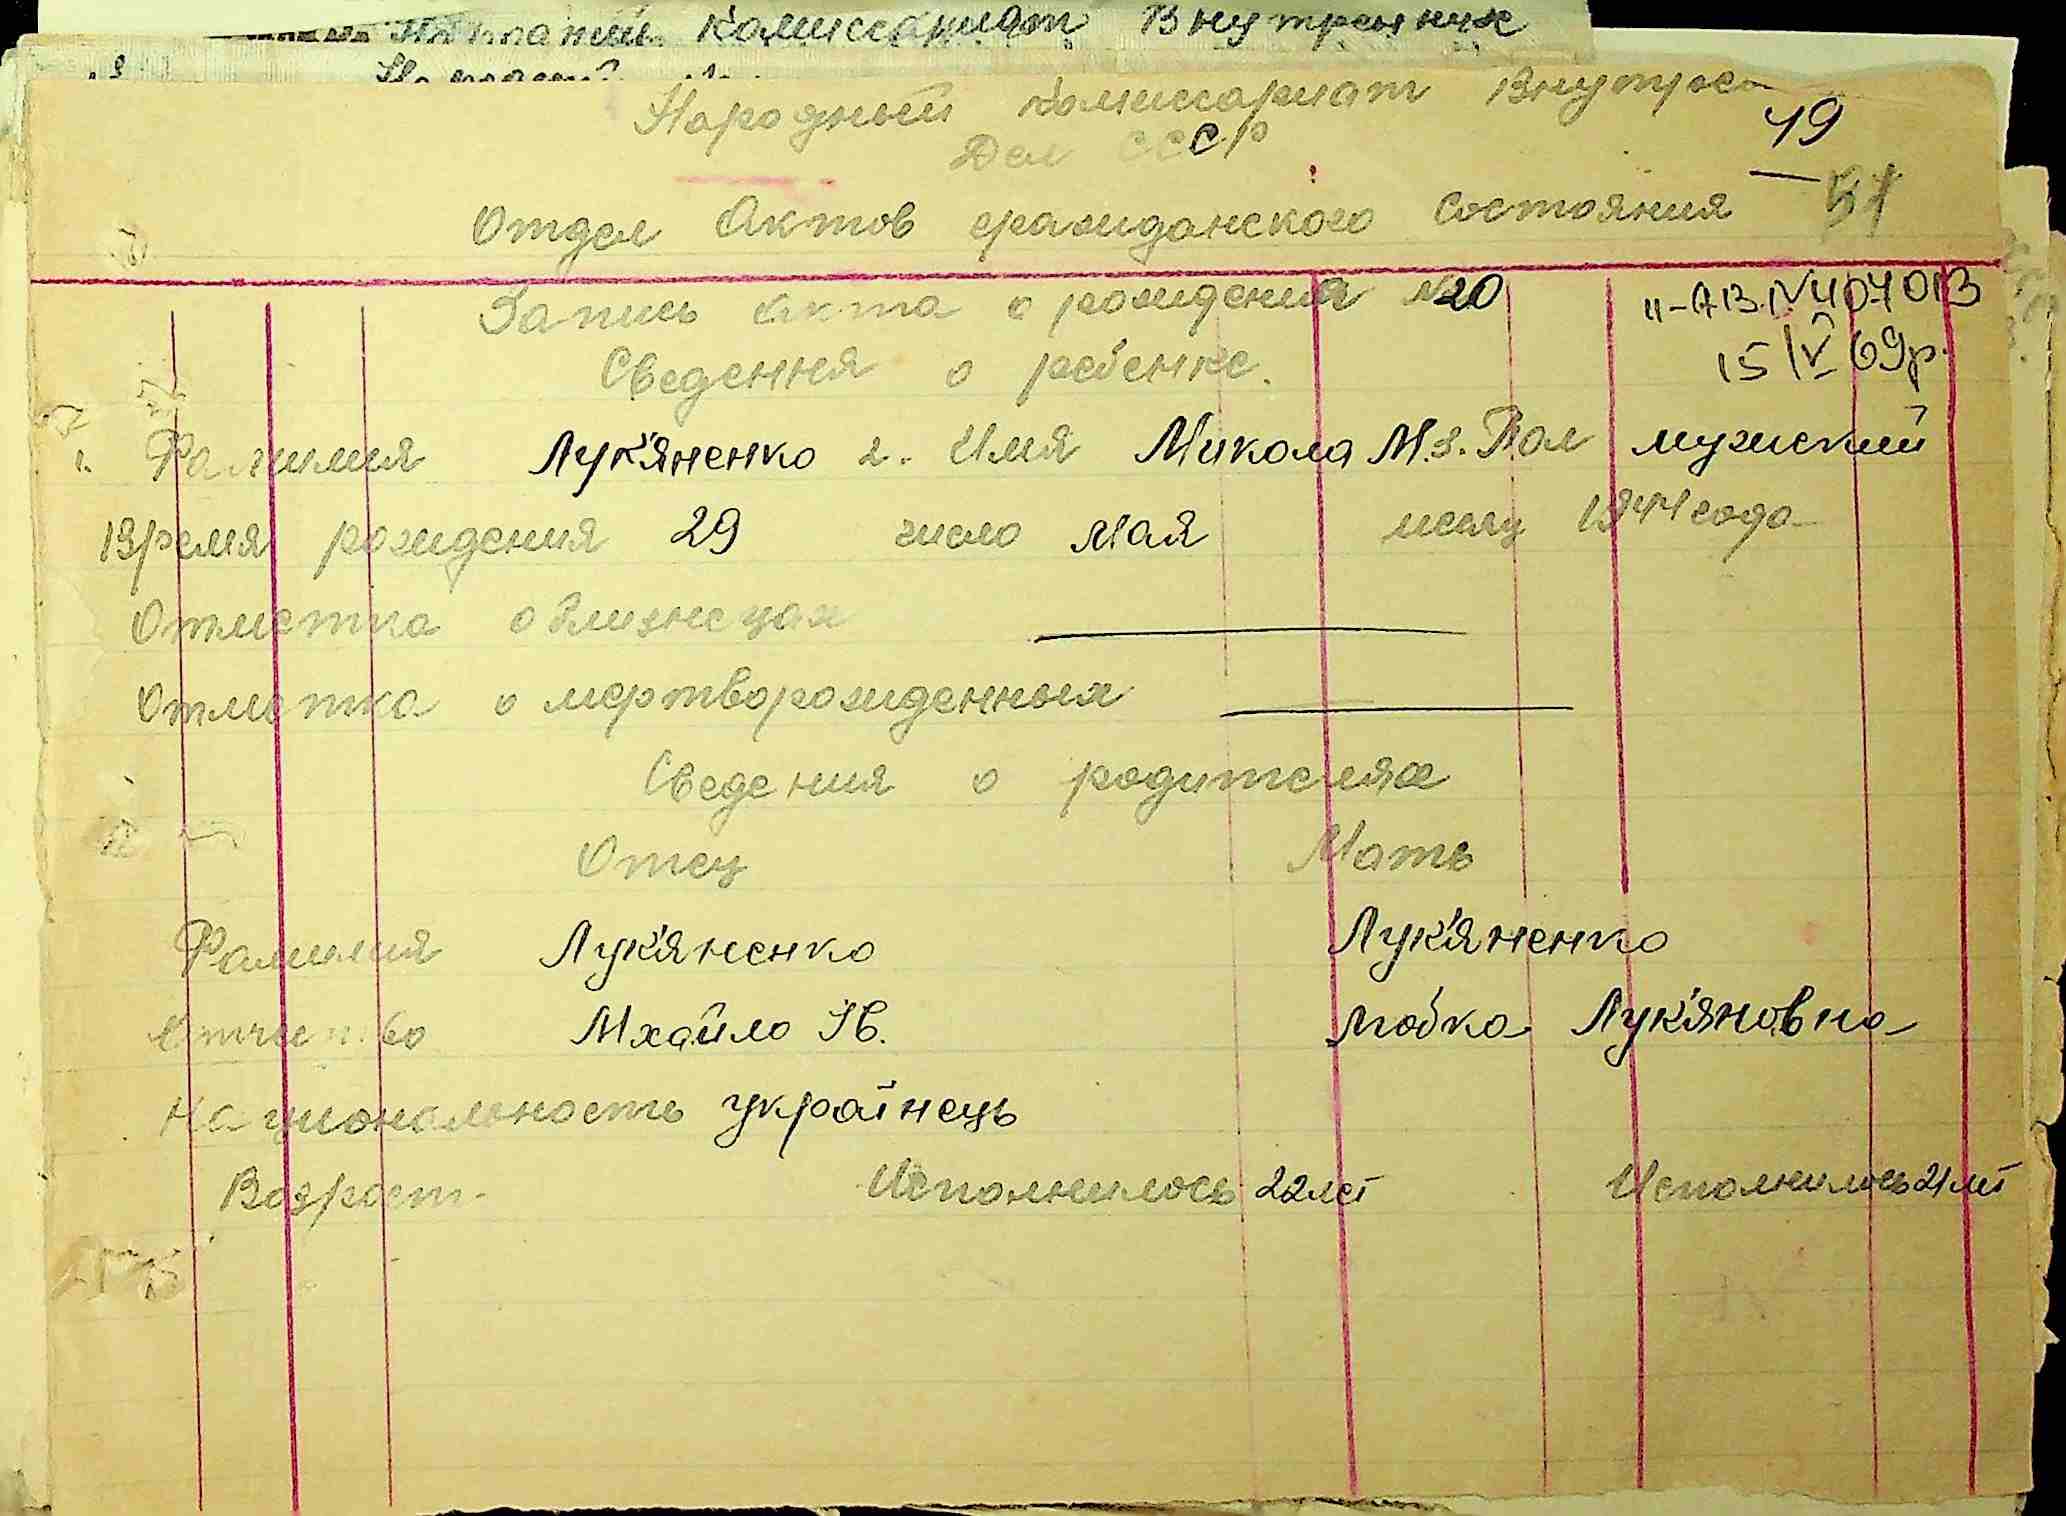 Народный Комиссариат Внутренних
Народный Комиссариат Внутрен
Дел СССР
49
51
Отдел Актов гражданского Состояния
Запись акта о рождения №20
ІІ-АВ №407013
Сведенния о ребенке.
15/IV 69р.
1. Фамилия Лук'яненко 2. Имя Микола М. 3. Пол мужский
Время рождения 29 число Мая месяц 1944 года
Отметка о близнецах
Отметка о мертворожденных
Сведения о родителях
Отец Мать
Фамилия Лук'яненко Лук'яненко
Отчество Мхайло Ів. Любка Лук'яновна
Национальность українець
Возраст Исполнилось 22 лет Исполнилось 21 лет